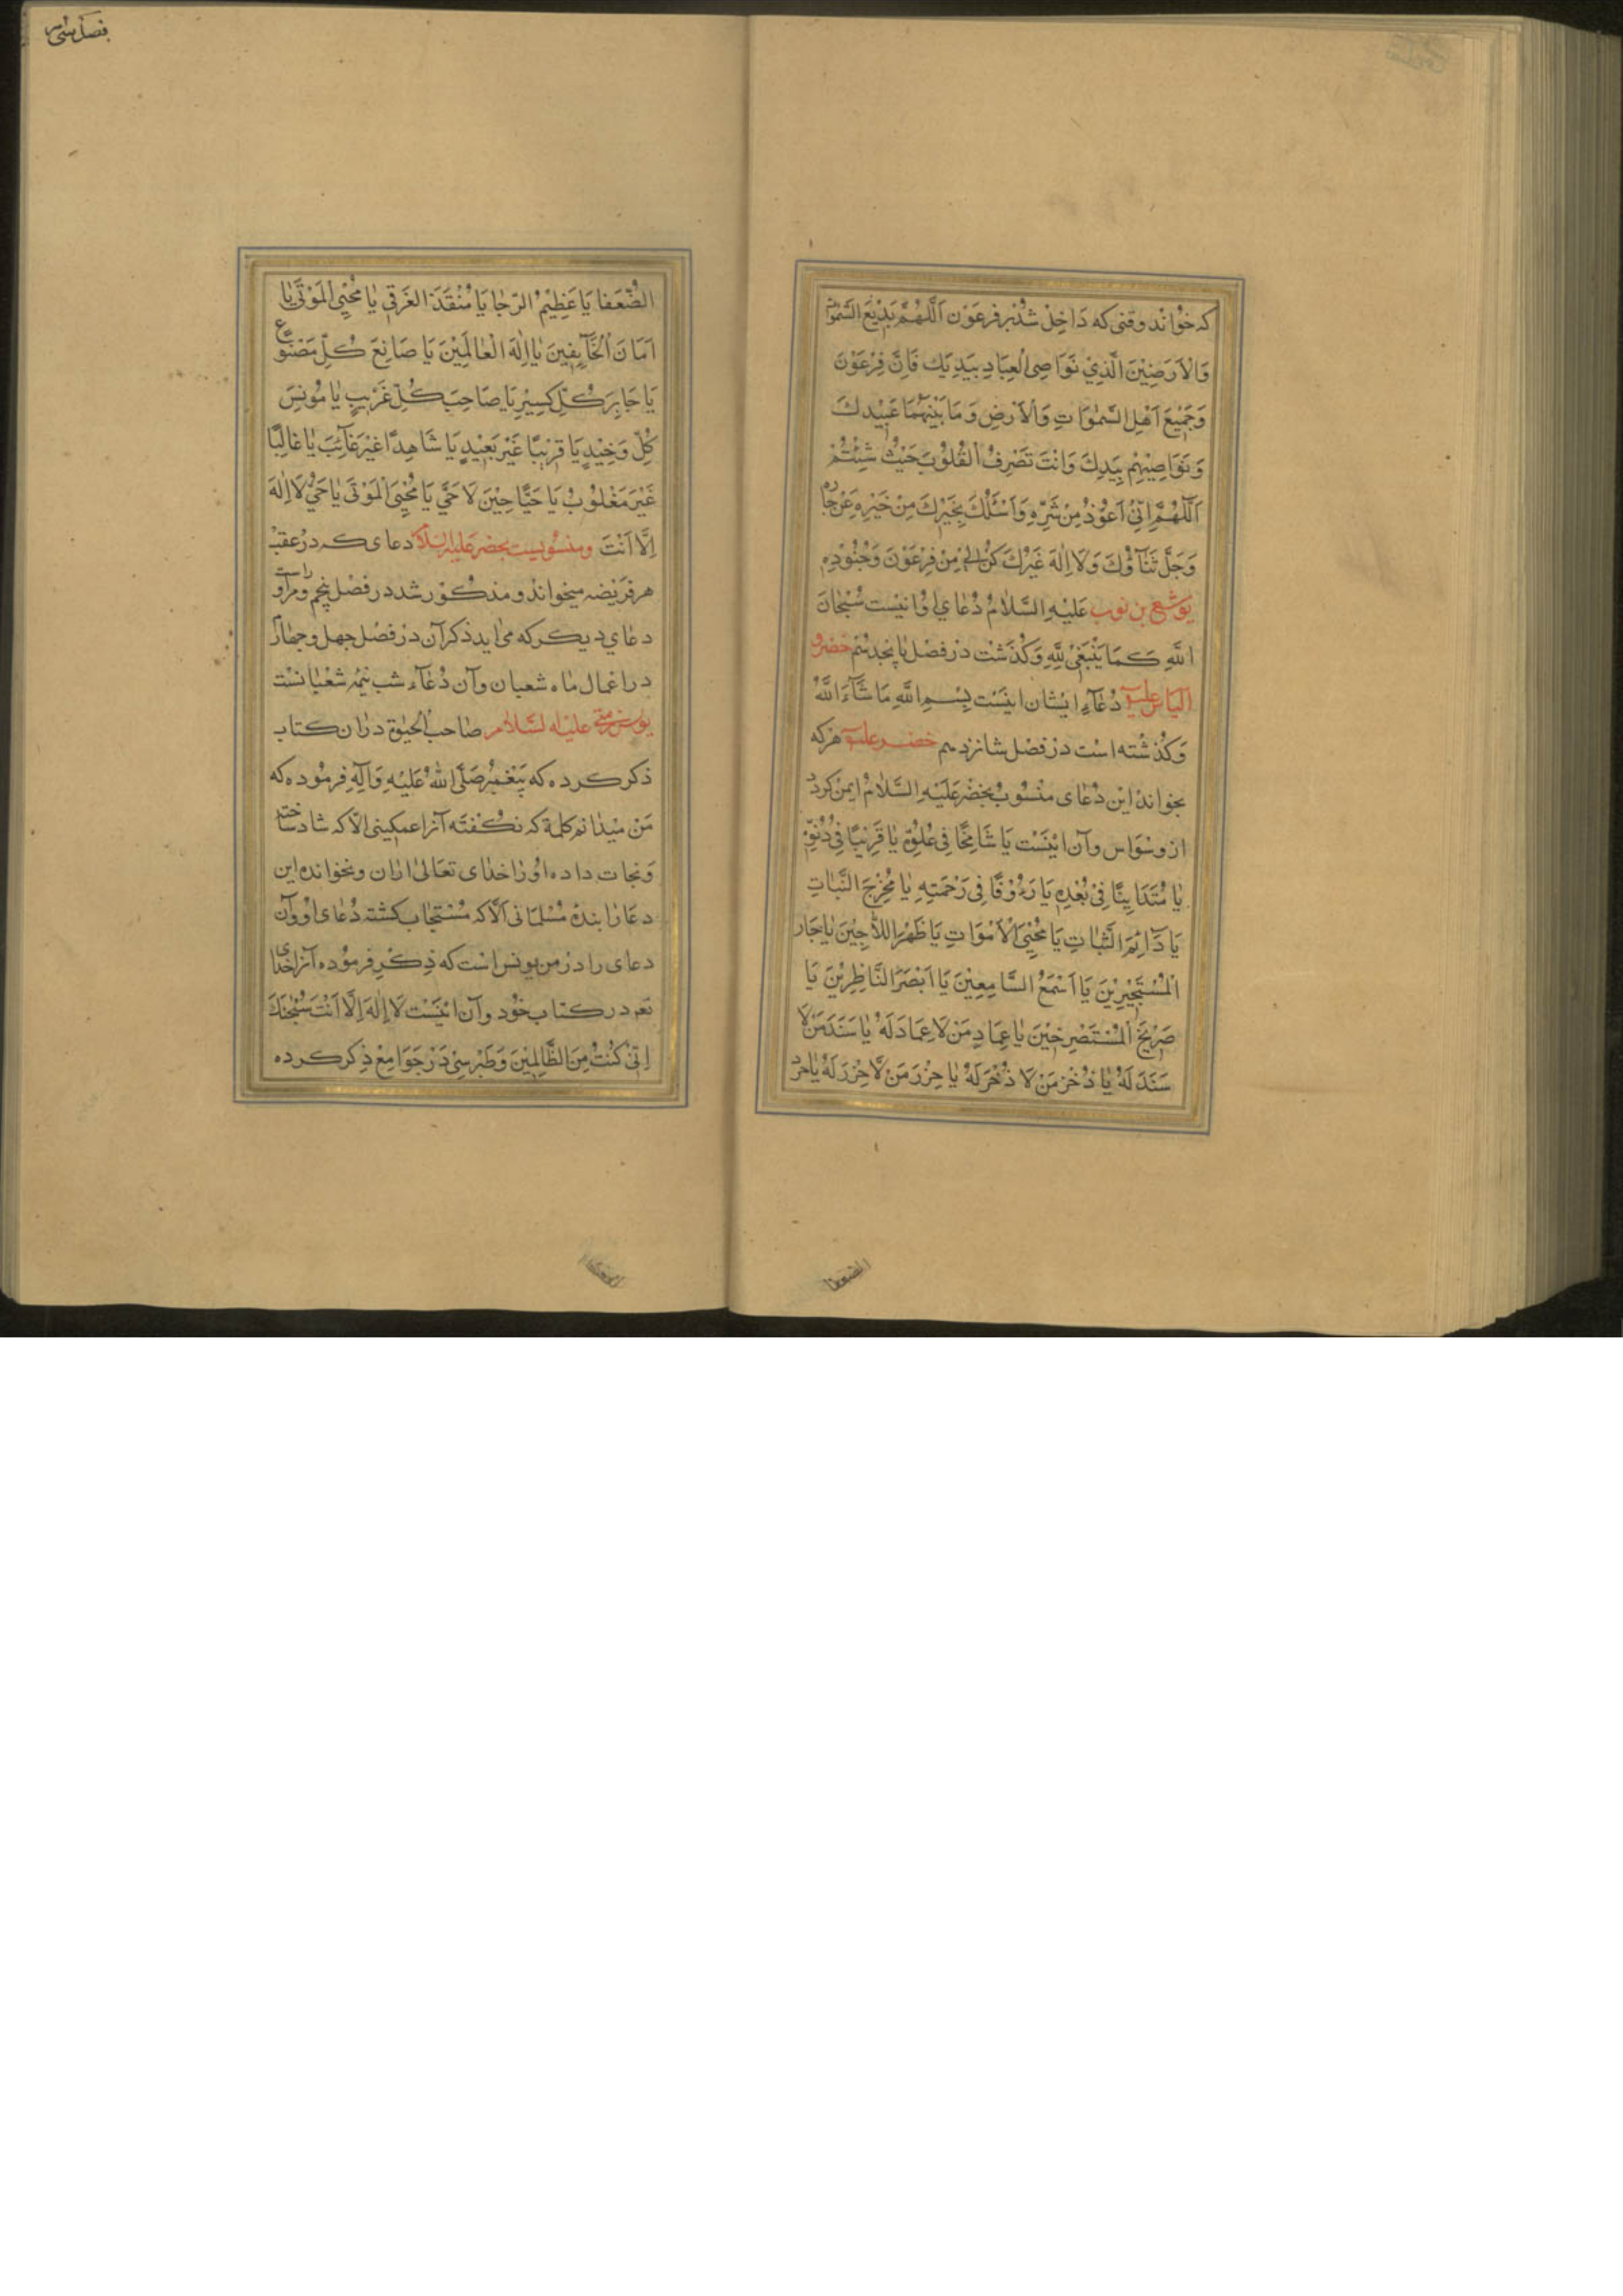 فصل سی
که خواند وقتی که دَاخِل شد بر فرعَوْن اَللّٰهُمَّ بَدِیْعَ السَّمٰوٰاتِ
وَالْاَرَضِیْنَ الَّذِیْ نَوَاصِی الْعِبَادِ بِیَدِیَك فَاِنَّ فِرْعَوْنَ
وَجَمِیْعَ اَهْلِ السَّمٰوَاتِ وَالْاَرْضِ وَمَا بَیْنَهُمَا عَبِیْدُكَ
وَنَوَاصِیْهِمْ بِیَدِكَ وَاَنْتَ تَصْرِفُ الْقُلُوْبَ حَیْثُ شِئْتَ
اَللّٰهُمَّ اِنِّیْ اَعُوْذُ مِنْ شَرِّهِ وَاَسْئَلُكَ بِخَیْرِكَ مِنْ خَیْرِهِ عَزَّ جَارُكَ
وَجَلَّ ثَنَآؤُكَ وَلَا اِلٰهَ غَیْرُكَ كُنْ لِیْ مِنْ فِرْعَوْنَ وَجُنُوْدِهِ
یوشع بن نون عَلَیْهِ السَّلٰامُ دُعَای اوْ انیْست سُبْحَانَ
اللّٰهِ كَمَا یَنْبَغِیْ لِلّٰهِ وَكُذَشْت دَر فَصْل پانجدهم خضر و
الیاس علیهما دُعَآءِ ایشان اینَسْت بِسْمِ اللّٰهِ مَا شَآءَ اللّٰهُ
وَكُذشته است دَر فَصْل شانزدهم خضر علیه هرکه
بخواند این دُعای منْسُوبْ بخضْر عَلَیْهِ السَّلٰامُ ایمن کرد
از وسْوَاس وآن ایْنَسْت یَا شَامِخًا فِیْ عُلُوِّهِ یَا قَرِیْبًا فِیْ دُنُوِّهِ
یَا مُتَدَانِیًا فِیْ بُعْدِهِ یَا رَءُوْفًا فِیْ رَحْمَتِهِ یَا مُخْرِجَ النَّبَاتِ
یَا دَآئِمَ الثَّبَاتِ یَا مُحْیِیَ الْاَمْوَاتِ یَا ظَهْرَ اللَّاجِیْنَ یَا جَارَ
الْمُسْتَجِیْرِیْنَ یَا اَسْمَعَ السَّامِعِیْنَ یَا اَبْصَرَ النَّاظِرِیْنَ یَا
صَرِیْخَ الْمُسْتَصْرِخِیْنَ یَا عِمَادَ مَنْ لَا عِمَادَ لَهُ یَا سَنَدَ مَنْ لَا
سَنَدَ لَهُ یَا ذُخْرَ مَنْ لَا ذُخْرَ لَهُ یَا حِرْزَ مَنْ لَا حِرْزَ لَهُ یَا حرز
الضعفا
الضُّعَفا یَا عَظِیْمَ الرَّجَا یَا مُنْقِذَ الغَرْقیٰ یَا مُحْیِیَ الْمَوْتیٰ یَا
اَمَانَ الْخَآئِفِیْنَ یَا اِلٰهَ الْعَالَمِیْنَ یَا صَانِعَ كُلِّ مَصْنُوعٍ
یَا جَابِرَ كُلِّ كَسِیْرٍ یَا صَاحِبَ كُلِّ غَرِیْبٍ یَا مُونِسَ
كُلِّ وَحِیْدٍ یَا قَرِیْبًا غَیْرَ بَعِیْدٍ یَا شَاهِدًا غَیْرَ غَآئِبٍ یَا غَالِبًا
غَیْرَ مَغْلُوْبٍ یَا حَیًّا حِیْنَ لَا حَیَّ یَا مُحْیِیَ الْمَوْتیٰ یَا حَیُّ لَا اِلٰهَ
اِلَّا اَنْتَ ومنسوبیست بحضر علیه السلام دعای که در عقب
هر فریضه میخواند ومذکور شد در فصْل پنجم و مر او راست
دعای دیکر که می اید ذکر آن در فصْل جهل وجهارم
در اعمال ماه شعبان وآن دُعَآء شب نیمه شعبانست
یونس بن متی علیه السلام صاحب الحیوٰة در ان کتاب
ذکر کرده که پیغمبر صَلَّی اللّٰهُ عَلَیْهِ وَآلِهِ فرموده که
مَن میدانم کلمة که نکفته آنرا غمکینی الّا که شاد ساخته
ونجات داده او را خدای تعالیٰ ازان ونخوانده این
دعا را بنده مسْلمانی الّا که مسْتجاب کشته دُعای او وآن
دعای برادر من یونس است که ذکر فرموده آنرا خدای
تعه در کتاب خود وآن اینَسْت لَا اِلٰهَ اِلَّا اَنْتَ سُبْحٰنَكَ
اِنِّیْ كُنْتُ مِنَ الظَّالِمِیْنَ وَطَبْرسِیْ دَر جَوَامِعْ ذِکر کرده